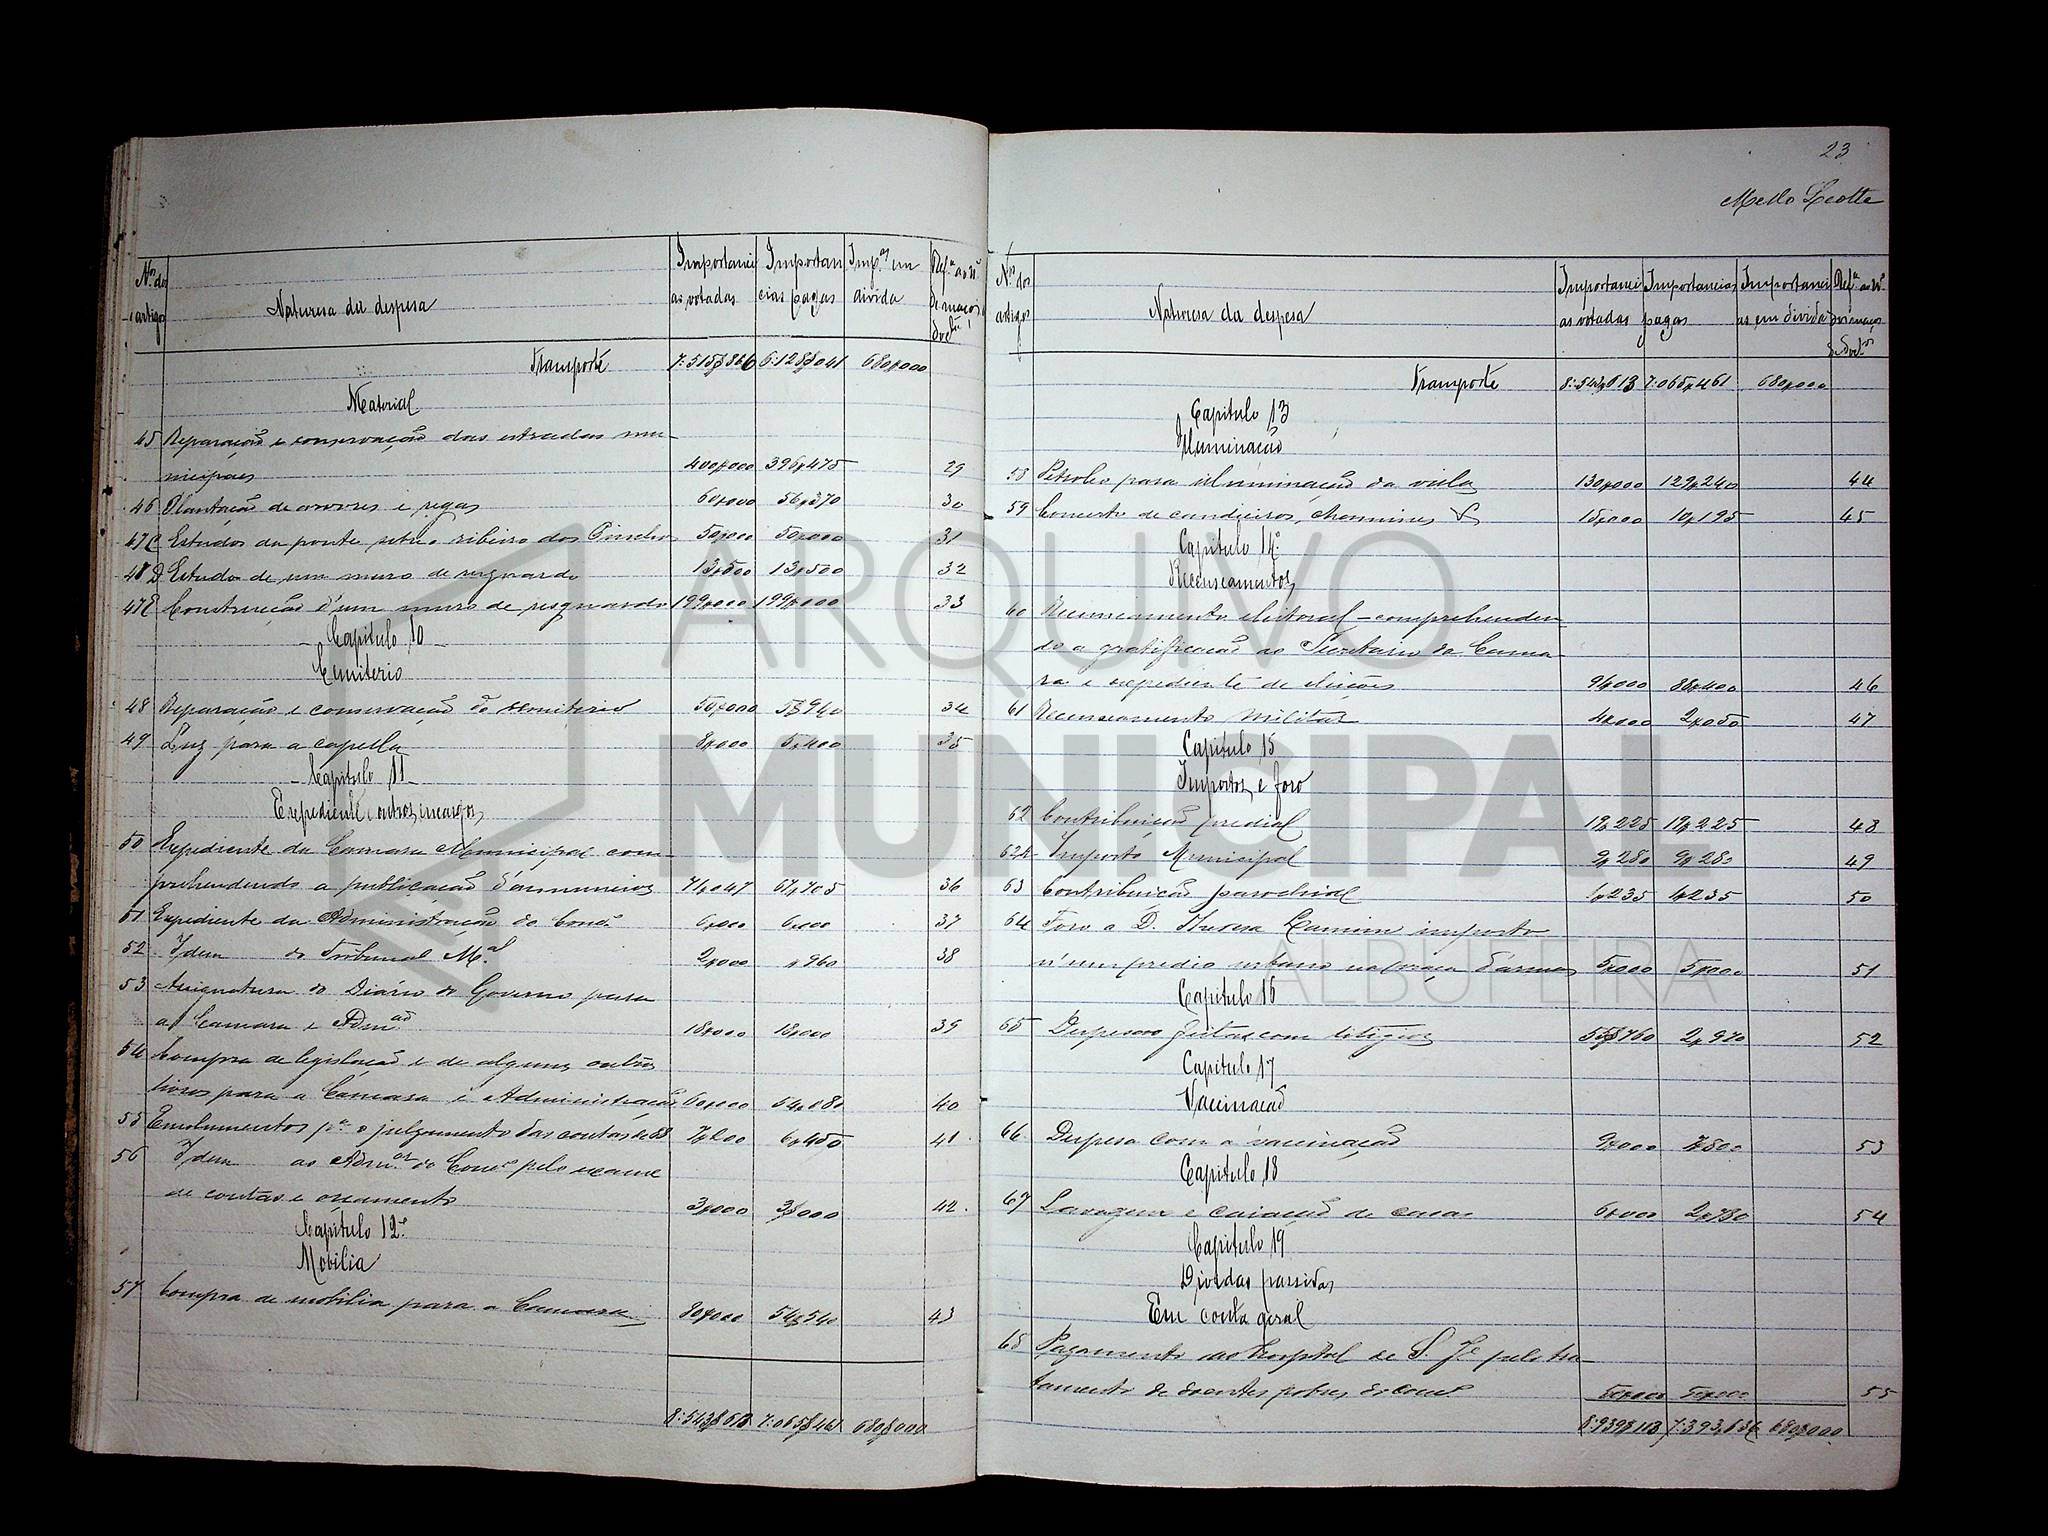 Nos. do artigo
Naturesa da despesa
Importanci as votadas
Importan cias pagas
Imp.as em divida
Ref.a ao Nº de maços
Transporte 7:515$866 6:128$041 680$000
Material
45 Reparação e conservação das estradas mu-
nicipaes 400$000 396$475 29
46 Plantação de arvores e regas 60$000 56$370 30
47 C Estudos da ponte sobre o ribeiro dos 50$000 50$000 31
48 D Estudo de um muro de resguardo 13$500 13$500 32
47 E Construcção d'um muro de resguardo 199$000 199$000 33
Capitulo 10
Cemiterio
48 Reparação e conservação do cemiterio 50$000 34
49 Luz para a capella 8$000 5$400 35
Capitulo 11
Expediente e outros encargos
50 Expediente da Camara Municipal com-
prehendendo a publicação d'annuncios 71$047 67$705 36
51 Expediente da Administração do Conc.o 6$000 6$000 37
52 Idem do Tribunal M.al 2$000 $960 38
53 Assignatura do Diário do Governo para
a Camara e Adm.ão 18$000 18$000 39
54 Compra de legislação e de alguns outros
livros para a Camara e Administração 60$000 54$080 40
55 Emolumentos p.a o julgamento das contas de 6$450 41
56 Idem ao Adm.or do Conc.o pelo exame
de contas e orçamento 3$000 3$000 42
Capitulo 12º
Mobilia
57 Compra de mobilia para a Camara 80$000 54$540 43
8:543$613 7:065$461 680$000
23
Mello Leotte
Nos. dos artigos
Naturesa da despesa
Importanci as votadas
Importancias pagas
Importanci as em divida
Ref.a ao Nº
Transporte 8:543$613 7:065$461 680$000
Capitulo 13
Illuminação
58 Petroleo para illuminação da villa 130$000 129$240 44
59 Concerto de candieiros, chamines & 15$000 10$195 45
Capitulo 14º
Recenseamentos
60 Recenseamento eleitoral - comprehenden-
do a gratificação ao Secretario da Cama-
ra e expediente de eleições 46
61 Recenseamento militar 4$000 2$050 47
Capitulo 15
Impostos e foro
62 Contribuição predial 19$225 19$225 48
62 A Imposto Municipal 9$280 9$280 49
63 Contribuição parochial 1$235 1$235 50
64 Foro a D. Thereza imposto
n'um predio urbano na praça d'armas 5$000 5$000 51
Capitulo 16
65 Despesas feitas com litigios 2$970 52
Capitulo 17
Vaccinação
66 Despesa com a vaccinação 9$000 7$500 53
Capitulo 18
67 Lavagem e caiação de casas 6$000 2$780 54
Capitulo 19
Dividas passivas
Em conta geral
68 Pagamento ao hospital de S. Jé pelo tra-
tamento de doentes pobres do conc.o 50$000 50$000 55
8:939$113 7:393$636 680$000
ARQUIVO
MUNICIPAL
ALBUFEIRA